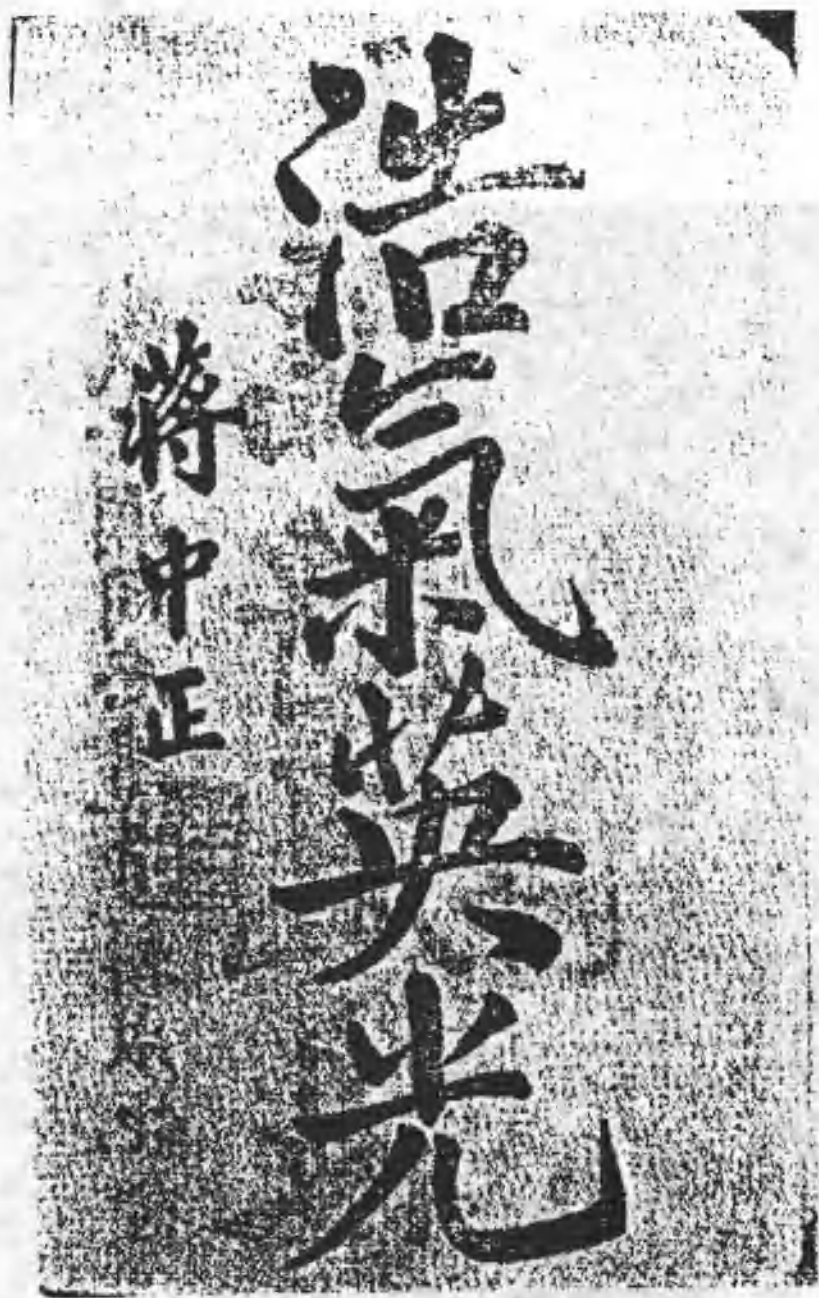 浩氣英光
蔣中正